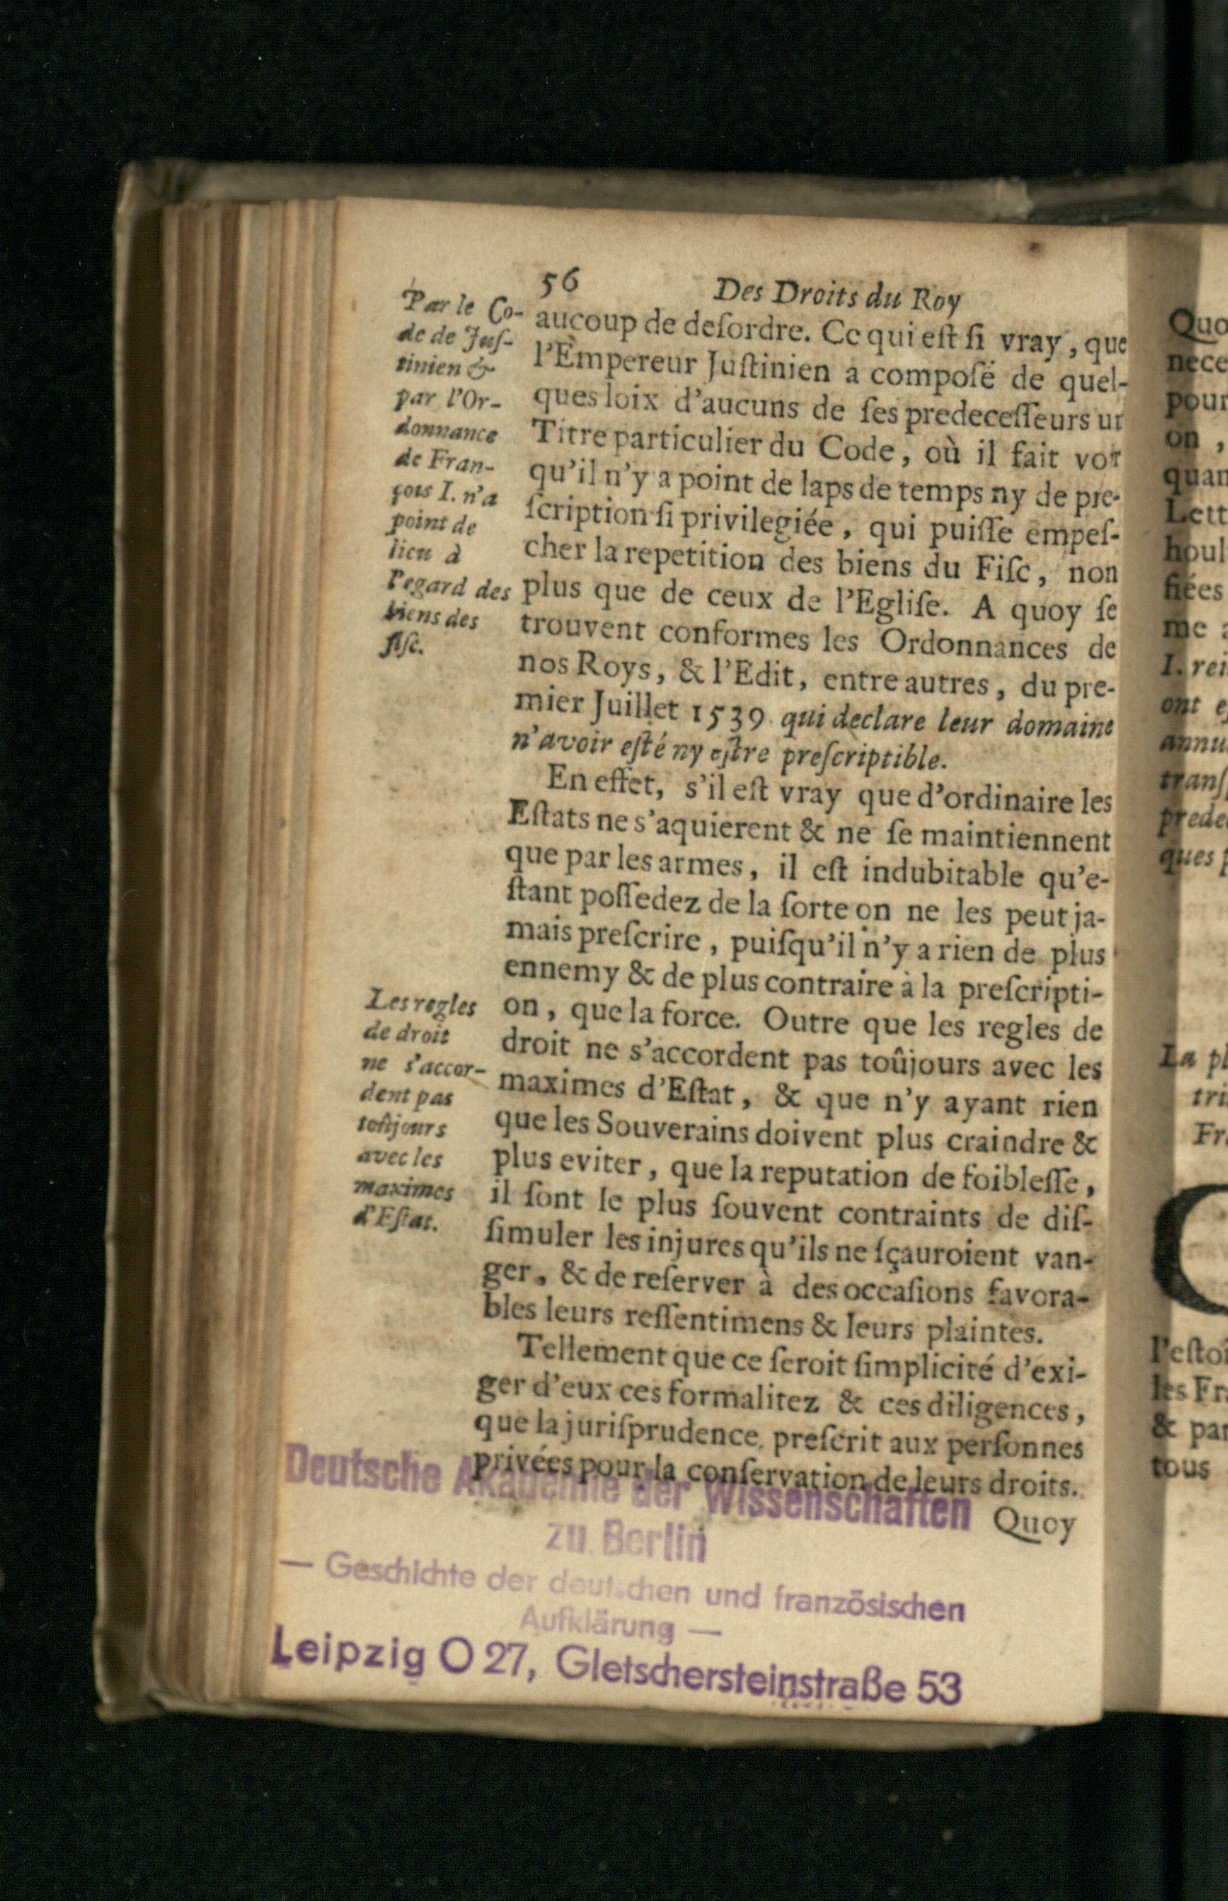 56 Des Droits du Roy
Par le Co-
de de Juſ-
tinien &
par l'Or-
donnance
de Fran-
çois I. n'a
point de
lieu à
l'egard des
biens des
fiſc.
aucoup de deſordre. Ce qui eſt ſi vray, que
l'Empereur Juſtinien a compoſé de quel-
ques loix d'aucuns de ſes predeceſſeurs un
Titre particulier du Code, où il fait voir
qu'il n'y a point de laps de temps ny de pre-
ſcription ſi privilegiée, qui puiſſe empeſ-
cher la repetition des biens du Fiſc, non
plus que de ceux de l'Egliſe. A quoy ſe
trouvent conformes les Ordonnances de
nos Roys, & l'Edit, entre autres, du pre-
mier Juillet 1539. qui declare leur domaine
n'avoir eſté ny eſtre preſcriptible.
En effet, s'il eſt vray que d'ordinaire les
Eſtats ne s'aquierent & ne ſe maintiennent
que par les armes, il eſt indubitable qu'e-
ſtant poſſedez de la ſorte on ne les peut ja-
mais preſcrire, puiſqu'il n'y a rien de plus
ennemy & de plus contraire à la preſcripti-
on, que la force. Outre que les regles de
droit ne s'accordent pas toûjours avec les
maximes d'Eſtat, & que n'y ayant rien
que les Souverains doivent plus craindre &
plus eviter, que la reputation de foibleſſe,
il ſont le plus ſouvent contraints de diſ-
ſimuler les injures qu'ils ne ſçauroient van-
ger, & de reſerver à des occaſions favora-
bles leurs reſſentimens & leurs plaintes.
Les regles
de droit
ne s'accor-
dent pas
toûjours
avec les
maximes
d'Eſtat.
Tellement que ce ſeroit ſimplicité d'exi-
ger d'eux ces formalitez & ces diligences,
que la juriſprudence preſcrit aux perſonnes
privées pour la conſervation de leurs droits.
Quoy
Deutsche Akademie der Wissenschaften
zu Berlin
— Geschichte der deutschen und französischen
Aufklärung —
Leipzig O 27, Gletschersteinstraße 53
Quo
nece
pour
on,
quan
Lett
houl
fiées
me a
I. rei
ont e
annu
tranſ
prede
ques
La pl
tri
Fr
C
l'eſtoi
les Fr
& par
tous